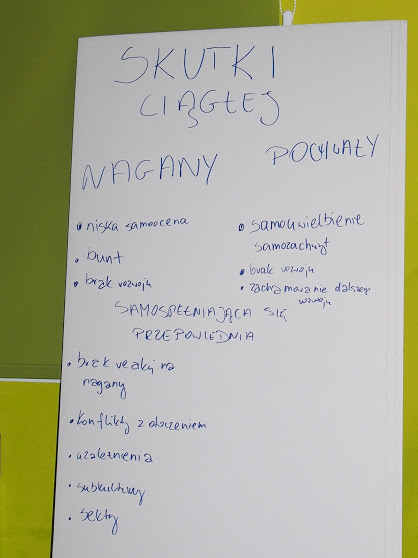 SKUTKI
CIĄGŁEJ
NAGANY
POCHWAŁY
• niska samoocena
• bunt
• brak rozwoju
• samouwielbienie
samozachwyt
• brak rozwoju
• zachamowanie dalszego
rozwoju
SAMOSPEŁNIAJĄCA SIĘ
PRZEPOWIEDNIA
• brak reakcji na
nagany
• konflikty z otoczeniem
• uzależnienia
• subkultury
• sekty